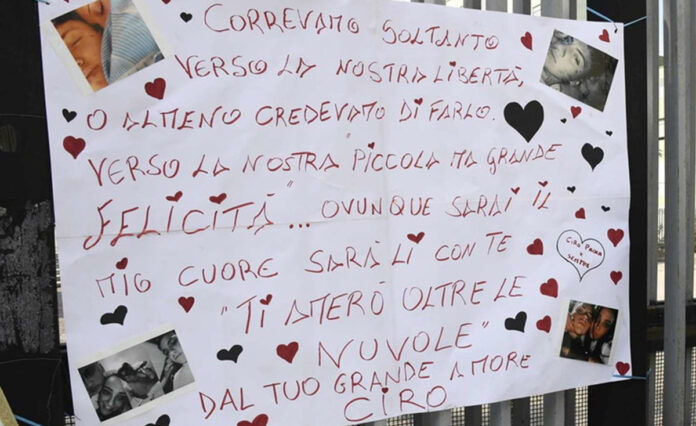 CORREVAMO SOLTANTO
VERSO LA NOSTRA LIBERTÀ,
O ALMENO CREDEVAMO DI FARLO.
VERSO LA NOSTRA PICCOLA MA GRANDE
"FELICITÀ"... OVUNQUE SARAI IL
MIO CUORE SARÀ LÌ CON TE
"TI AMERÒ OLTRE LE
NUVOLE"
DAL TUO GRANDE AMORE
CIRO
CIRO